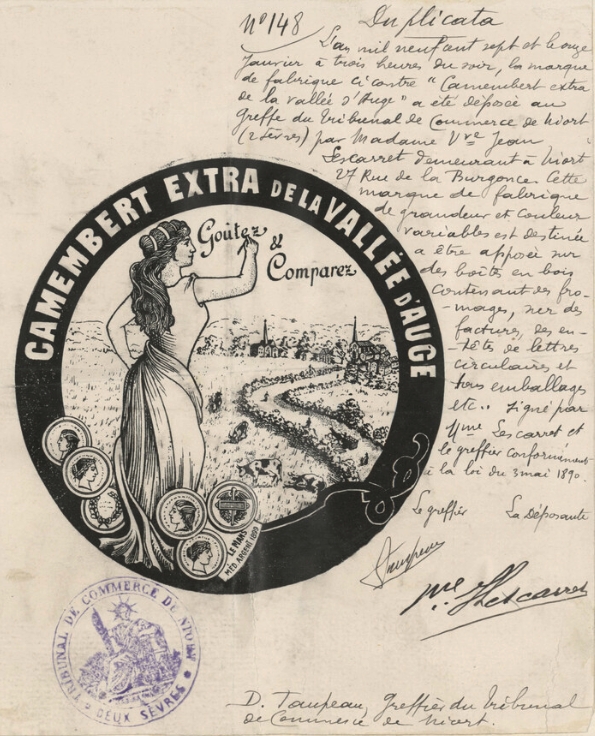 N° 148 Duplicata
L'an mil neuf cent sept et le onze
Janvier à trois heures du soir, la marque
de fabrique ci contre "Camembert extra
de la vallée d'Auge" a été déposée au
Greffe du Tribunal de Commerce de Niort
(2 Sèvres) par Madame Vve Jean
Lescarret demeurant à Niort
27 Rue de la Burgonce. Cette
marque de fabrique
de grandeur et couleur
variables est destinée
a être apposée sur
des boîtes en bois
contenant des fro-
-mages, sur des
factures, des en-
-têtes de lettres
circulaires et
tous emballages
etc.. Signé par
Mme Lescarret et
le greffier conformément
à la loi du 3 mai 1890.
Le greffier La Déposante
Taupeau
Me Lescarret
CAMEMBERT EXTRA DE LA VALLÉE D'AUGE
Goûtez
&
Comparez
LE MANS
MÉD. ARGENT 1899
TRIBUNAL DE COMMERCE DE NIORT
DEUX SÈVRES
D. Taupeau, Greffier du Tribunal
de Commerce de Niort.